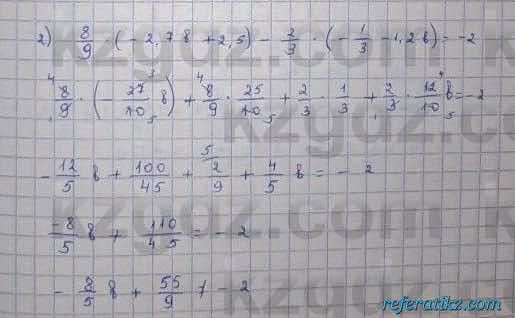 2) 8/9 · (-2,7в + 2,5) - 2/3 · (-1/3 - 1,2в) = -2
8/9 · (-27/10 в) + 8/9 · 25/10 + 2/3 · 1/3 + 2/3 · 12/10 в = -2
-12/5 в + 100/45 + 2/9 + 4/5 в = - 2
-8/5 в + 110/45 = - 2
- 8/5 в + 55/9 7 - 2
kzgdz.com
referatikz.com